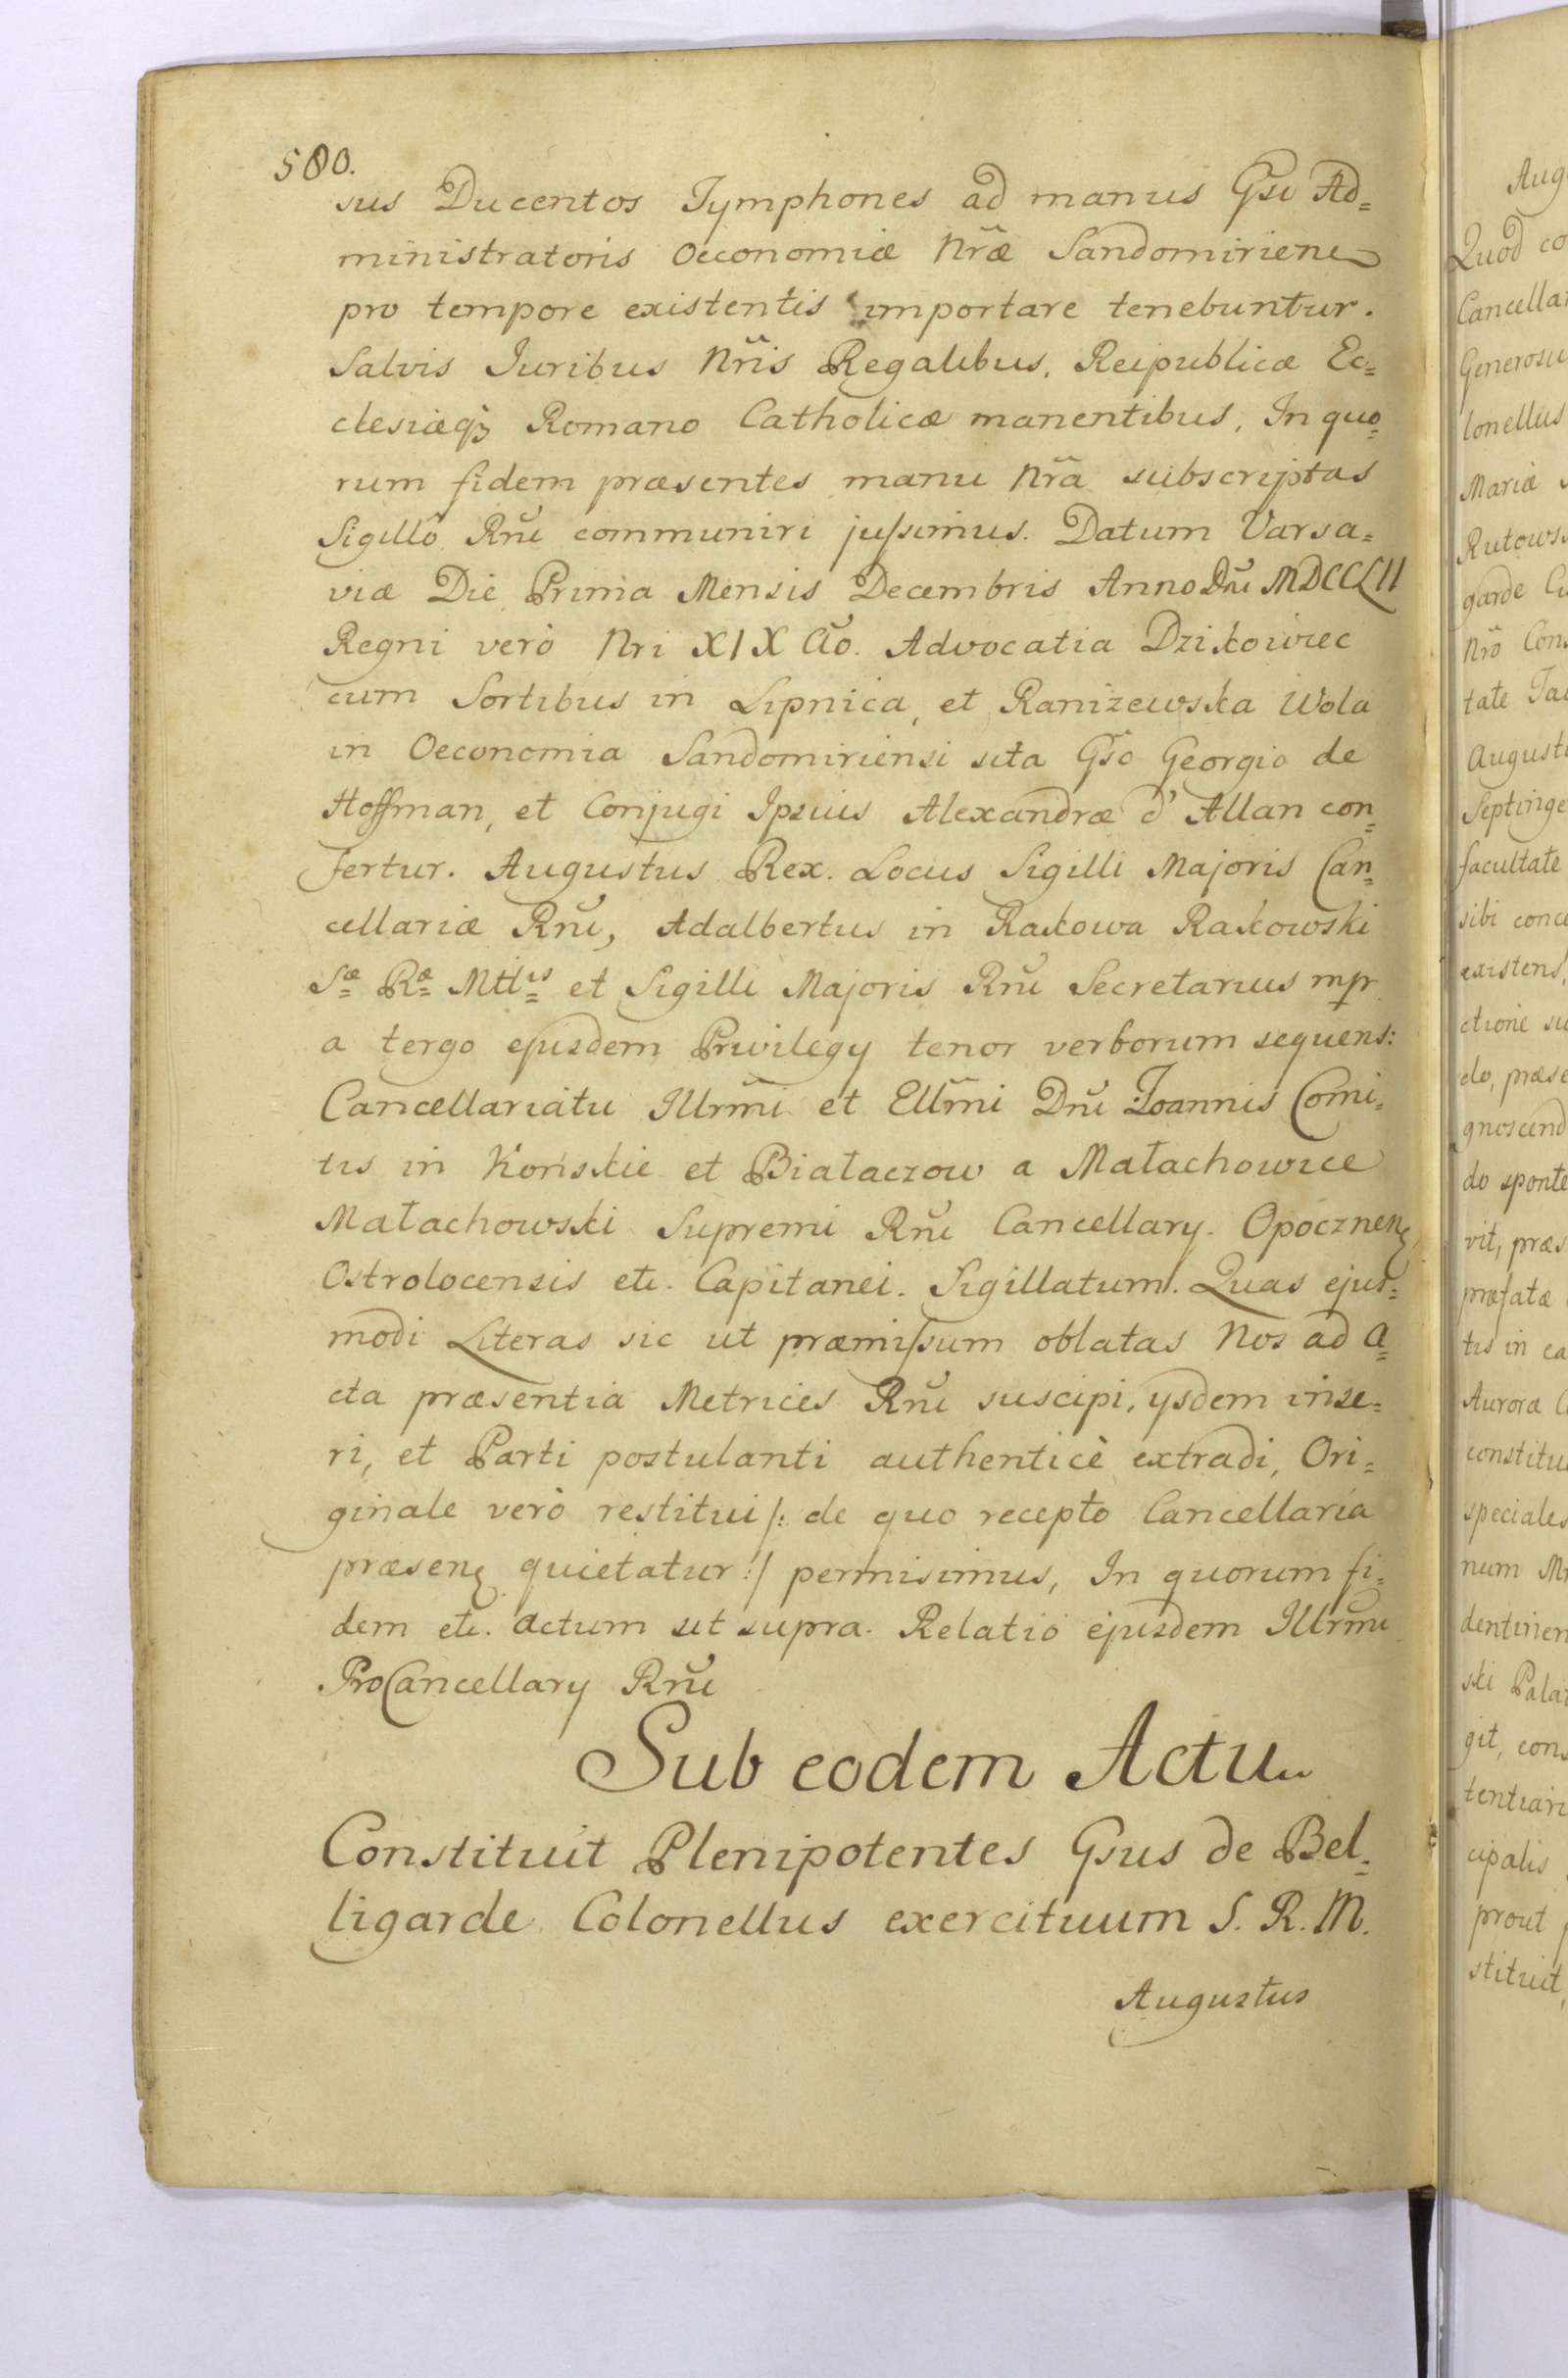 580.
sus Ducentos Tymphones ad manus Gsi Ad=
ministratoris Oeconomiæ Nr̃æ Sandomirienẽ
pro tempore existentis importare tenebuntur.
Salvis Juribus Nr̃is Regalibus, Reipublicæ Ec=
clesiæq́ʒ Romano Catholicæ manentibus, In quo=
rum fidem præsentes manu Nr̃a subscriptas
Sigillô Rñi communiri jussimus. Datum Varsa=
viæ Die Prima Mensis Decembris Anno Dñi MDCCLII
Regni verò Nri XIX Aõ. Advocatia Dzikowiec
cum Sortibus in Lipnica, et Raniżewska Wola
in Oeconomia Sandomiriensi sita Gso Georgio de
Hoffman, et Conjugi Ipsius Alexandræ d' Allan con=
fertur. Augustus Rex. Locus Sigilli Majoris Can=
cellariæ Rñi, Adalbertus in Rakowa Rakowski
Sæ Ræ Mttis et Sigilli Majoris Rñi Secretarius mpr
a tergo ejusdem Privilegy tenor verborum sequens:
Cancellariatu Illrm̃i et Ellm̃i Dñi Joannis Comi=
tis in Końskie et Białaczow a Małachowice
Małachowski Supremi Rñi Cancellary. Opocznenʒ
Ostrolocensis etc. Capitanei. Sigillatum. Quas ejus=
modi Literas sic ut præmissum oblatas Nos ad A=
cta præsentia Metrices Rñi suscipi, ysdem inse=
ri, et Parti postulanti authenticè extradi, Ori=
ginale verò restitui /: de quo recepto Cancellaria
præsenʒ quietatur :/ permisimus, In quorum fi=
dem etc. Actum ut supra. Relatio ejusdem Illrm̃i
ProCancellary Rñi
Sub eodem Actu
Constituit Plenipotentes Gsus de Bel=
ligarde Colonellus exercituum S. R. M.
Augustus
Aug
Quod co
Cancellar
Generosu
lonellus
Mariæ
Rutows
garde
Nrõ Con
tate
Augusti
Septinge
facultate
sibi conce
existens,
ctione su
do, præse
gnoscend
do sponte
vit, præs
præfatæ
tis in ea
Auroræ
constitu
speciales
num
dentirien
ski Palat
git, cons
tentiari
cipalis
prout
stituit,